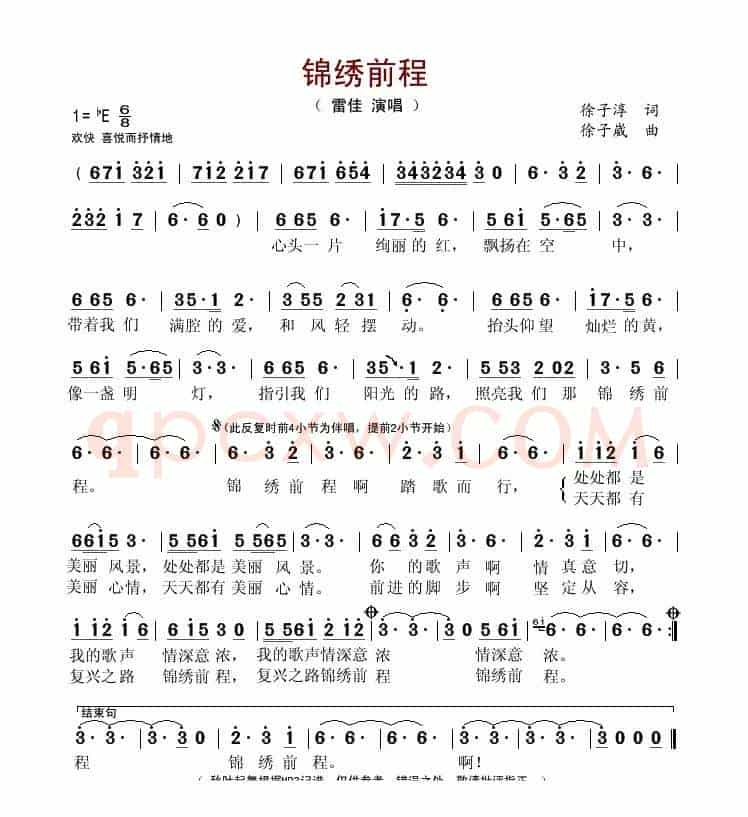 锦绣前程
（ 雷佳 演唱 ）
1= ♭E 6/8
徐子淳 词
欢快 喜悦而抒情地
徐子崴 曲
( 671 321 | 712 217 | 671 654 | 343234 3 0 | 6· 3 2 | 3· 6· |
232 1 7 | 6· 6 0 ) | 6 65 6· | 17·5 6· | 5 61 5·65 | 3· 3· |
心头一片 绚丽的红, 飘扬在空 中,
6 65 6· | 35·1 2· | 3 55 2 31 | 6· 6· | 6 65 6· | 17·5 6· |
带着我们 满腔的爱, 和风轻摆 动。 抬头仰望 灿烂的黄,
5 61 5·65 | 3· 3· | 6 65 6· | 35·1 2· | 5 53 2 02 | 5 65 3 |
像一盏明 灯, 指引我们 阳光的路, 照亮我们那 锦绣前
𝄋(此反复时前4小节为伴唱, 提前2小节开始)
6· 6· | 6· 6· | 6· 3 2 | 3· 6· | 2· 3 1 | 6· 6· | 1 12 1 6 |
程。 锦绣前程啊 踏歌而行, 处处都是
天天都有
6615 3 | 5 561 5 56 | 3· 3· | 6 6 3 2 | 3· 6· | 2· 3 1 | 6· 6· |
美丽 风景, 处处都是美丽 风景。 你 的歌声啊 情真意 切,
美丽 心情, 天天都有美丽 心情。 前进的脚步啊 坚定从 容,
1 12 1 6 | 5 56 3 0 | 5 561 2 12 | 3· 3· | 3 0 5 56 | 6· 6· :||
我的歌声 情深意 浓, 我的歌声情深意 浓 情深意 浓。
复兴之路 锦绣前程, 复兴之路锦绣前程 锦绣前 程。
结束句
3· 3· | 3· 3 0 | 2· 3 1 | 3· 3· | 6· 6· | 6· 6· | 3· 3· | 3 0 0 ||
程 锦绣前 程。 啊!
qpcxw.COM